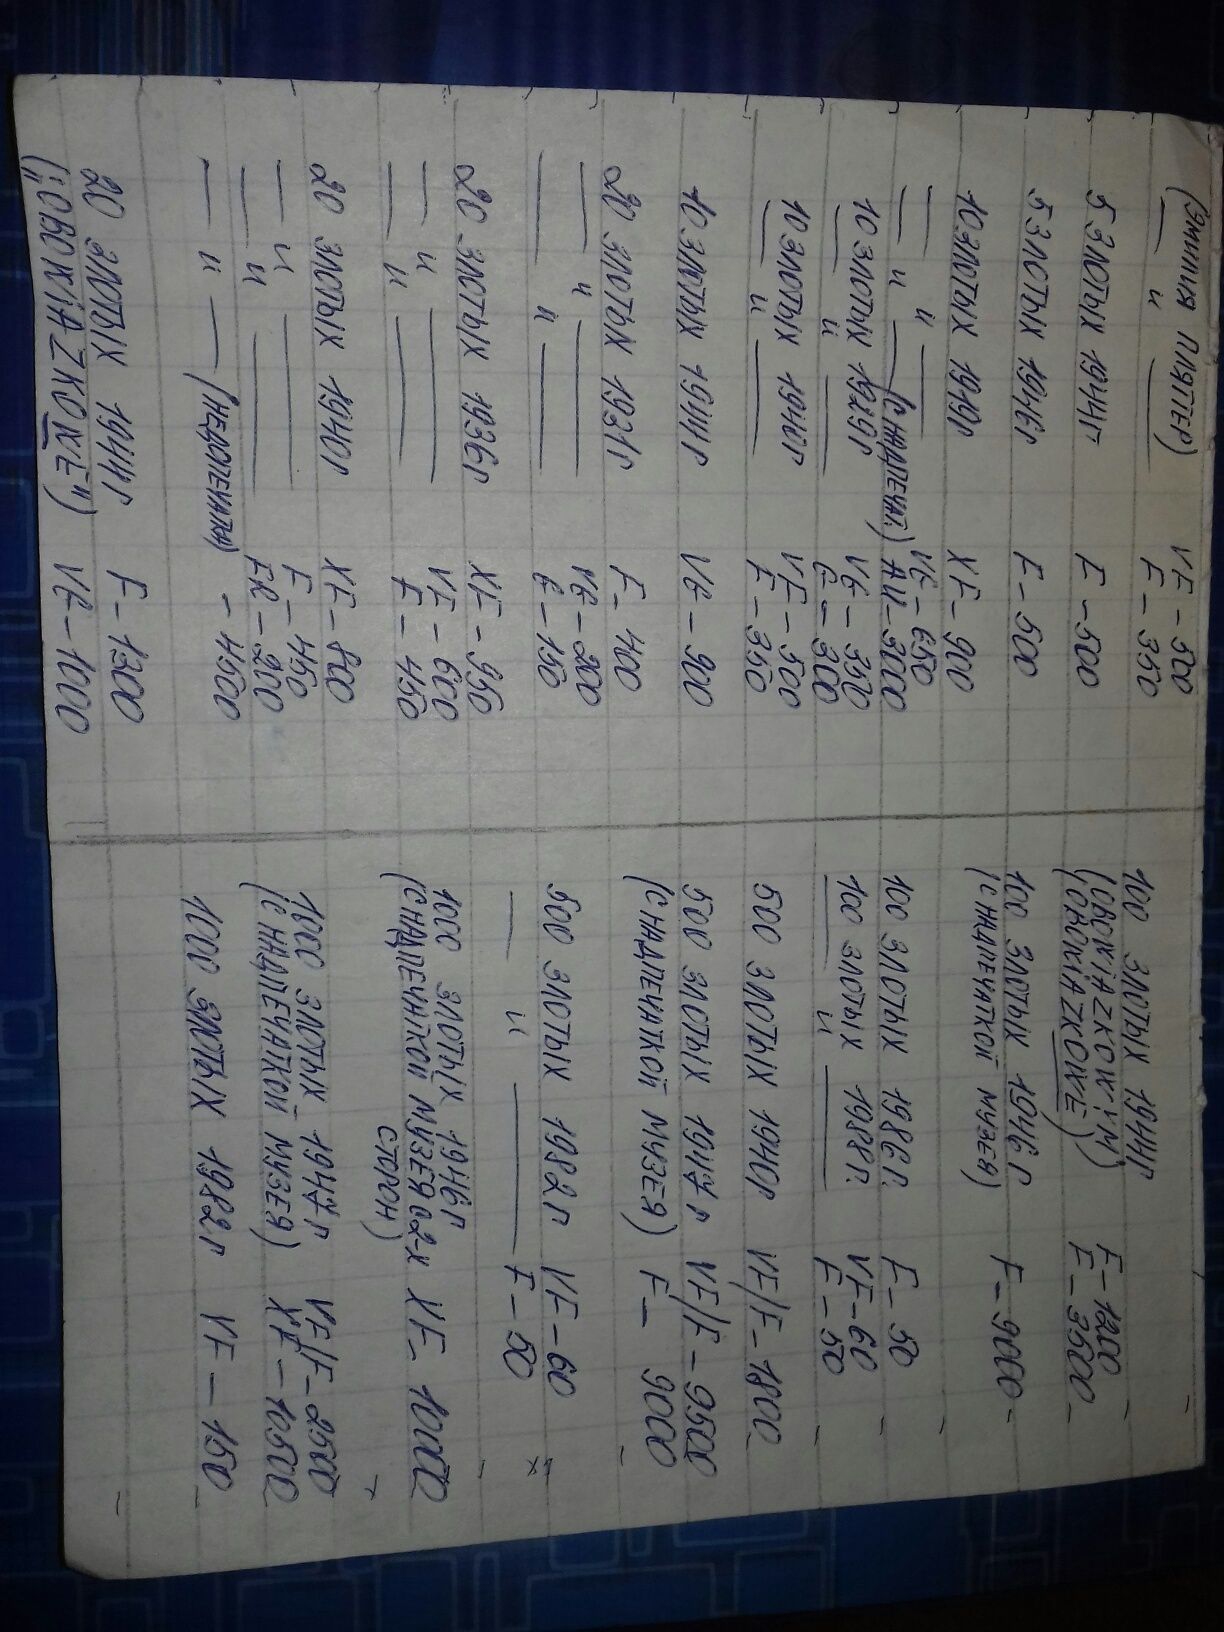 (ЭМИЦИЯ ПЛЯТТЕР)
— и — VF – 500
F – 350
5 ЗЛОТЫХ 1944г F – 500
5 ЗЛОТЫХ 1946г F – 500
10 ЗЛОТЫХ 1919г XF – 900
— и — VF – 650
— и — (С НАДПЕЧАТ.) AU – 3000
10 ЗЛОТЫХ 1929г VF – 350
— и — F – 300
10 ЗЛОТЫХ 1940г VF – 500
— и — F – 350
10 ЗЛОТЫХ 1944г VF – 900
20 ЗЛОТЫХ 1931г F – 400
— и — VG – 200
— и — G – 150
20 ЗЛОТЫХ 1936г XF – 950
— и — VF – 600
— и — F – 450
20 ЗЛОТЫХ 1940г XF – 800
— и — F – 450
— и — FR – 200
— и — (НЕДОПЕЧАТКИ) – 4500
20 ЗЛОТЫХ 1944г F – 1300
("OBOWIAZKOWE") VG – 1000
100 ЗЛОТЫХ 1944г
(OBOWIAZKOWYM) F – 1200
(OBOWIAZKOWE) F – 3500
100 ЗЛОТЫХ 1946г
(С НАДПЕЧАТКОЙ МУЗЕЯ) F – 9000
100 ЗЛОТЫХ 1986г. F – 50
100 ЗЛОТЫХ 1988г. VF – 60
— и — F – 50
500 ЗЛОТЫХ 1940г VF/F – 1800
500 ЗЛОТЫХ 1947г VF/F – 9500
(С НАДПЕЧАТКОЙ МУЗЕЯ) F – 9000
500 ЗЛОТЫХ 1982г VF – 60
— и — F – 50
1000 ЗЛОТЫХ 1946г
(С НАДПЕЧАТКОЙ МУЗЕЯ с 2-х XF – 10000
СТОРОН)
1000 ЗЛОТЫХ 1947г VF/F – 2500
(С НАДПЕЧАТКОЙ МУЗЕЯ) XF – 10500
1000 ЗЛОТЫХ 1982г VF – 150